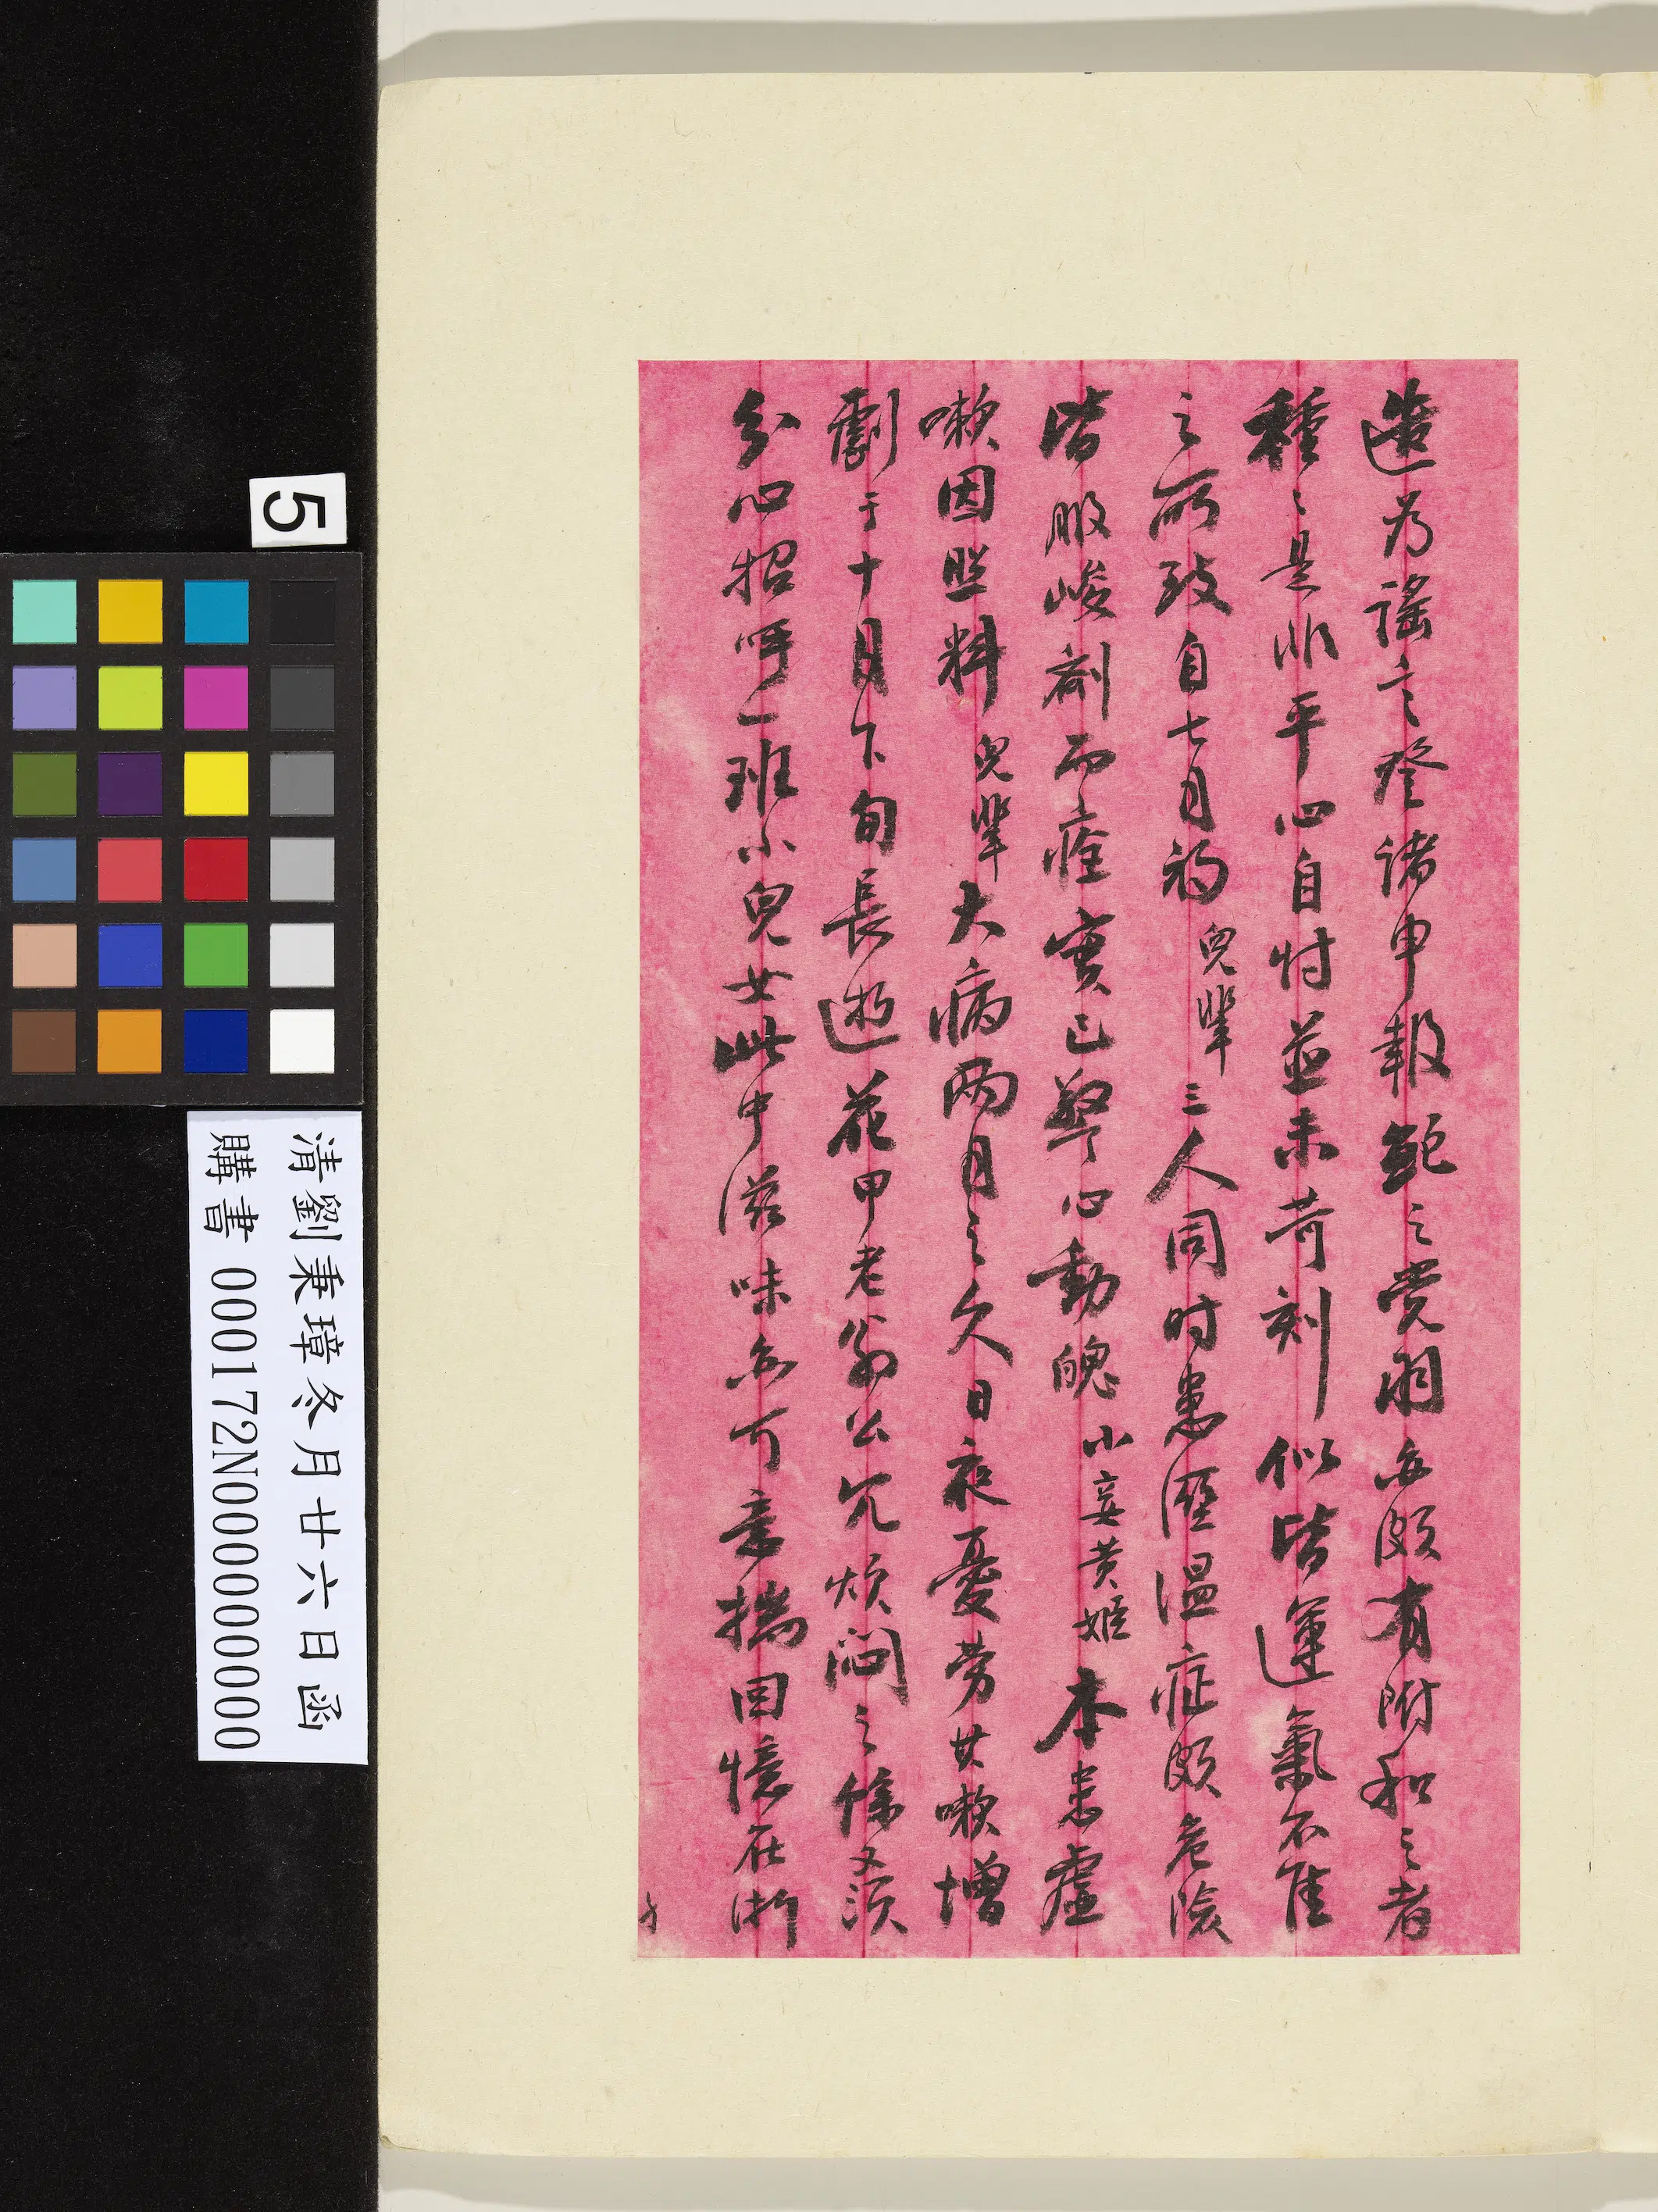 造為謠言登諸申報鮑之黨羽亦頗有附和之者
種〻是非平心自忖並未苛刻似皆運氣不佳
之所致自七月初兒輩三人同时患溼温症頗危險
皆服峻劑而痊實已驚心動魄小妾黃姬本患虛
嗽因照料兒輩大病两月之久日夜憂勞其嗽增
劇于十月下旬長逝花甲老翁公冗煩悶之餘又須
分心招呼一班小兒女此中滋味亦可意揣回憶在浙
5
清劉秉璋冬月廿六日函
購書 000172N000000000